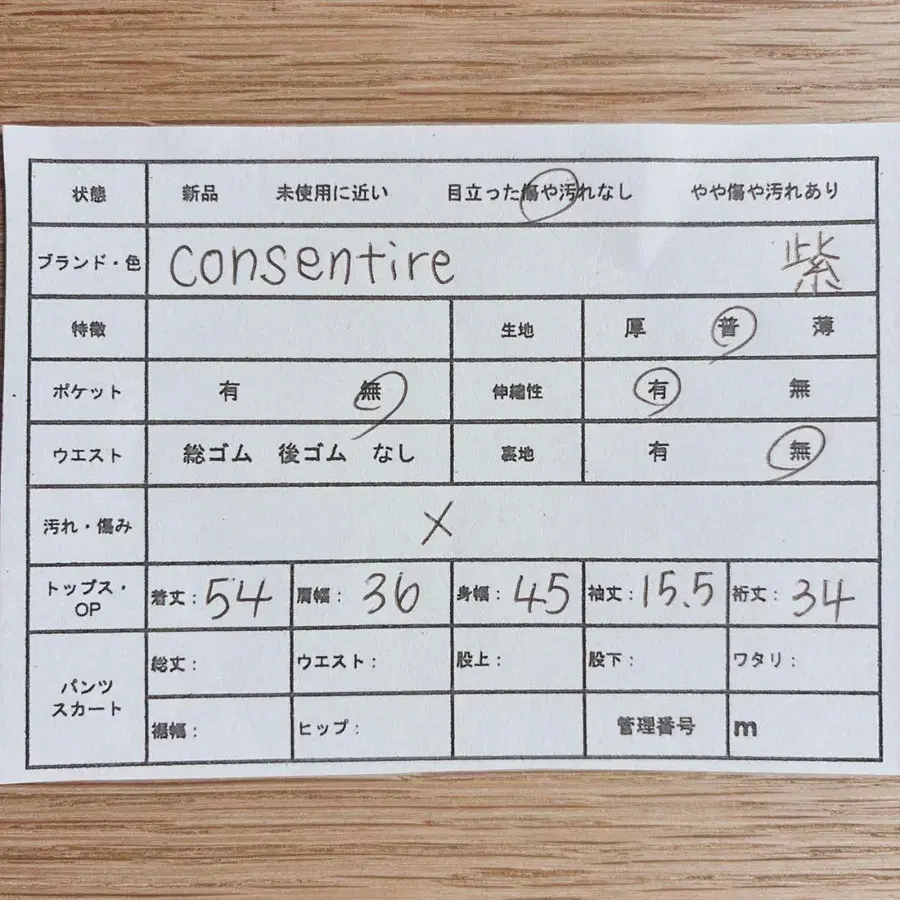 状態 新品 未使用に近い 目立った傷や汚れなし やや傷や汚れあり
ブランド・色 consentire 紫
特徴 生地 厚 普 薄
ポケット 有 無 伸縮性 有 無
ウエスト 総ゴム 後ゴム なし 裏地 有 無
汚れ・傷み ×
トップス・OP 着丈：54 肩幅：36 身幅：45 袖丈：15.5 裄丈：34
パンツ スカート 総丈： ウエスト： 股上： 股下： ワタリ：
裾幅： ヒップ： 管理番号 m